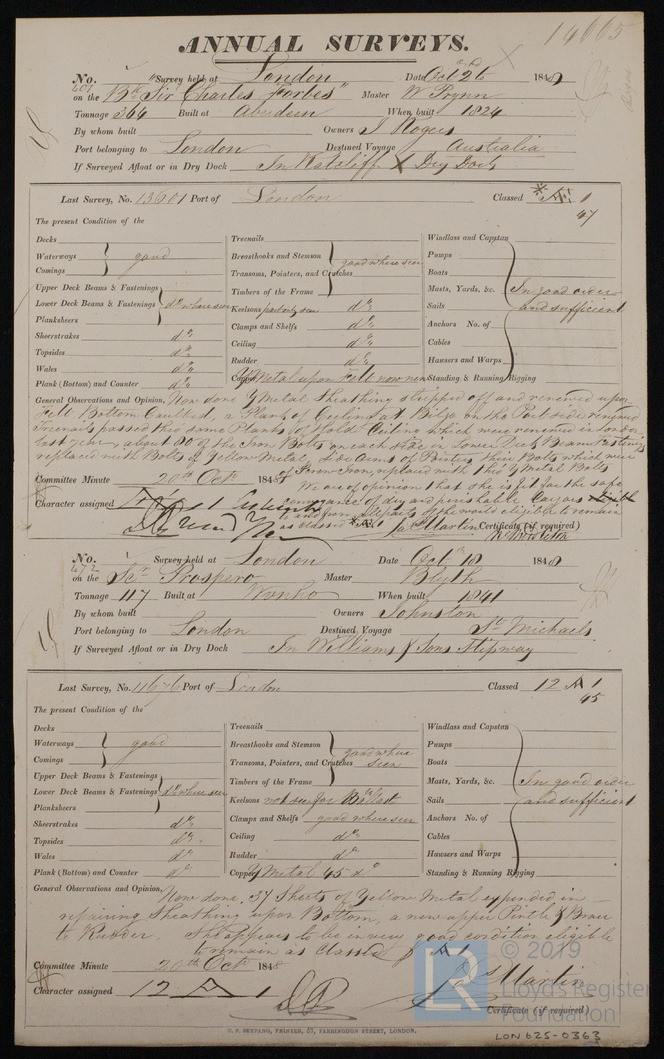 14665
ANNUAL SURVEYS.
No. 401 Survey held at London Date Octr 2d 1848
on the Bk "Sir Charles Forbes" Master W Prynn
Tonnage 364 Built at Aberdeen When built 1824
By whom built Owners J Rogers
Port belonging to London Destined Voyage Australia
If Surveyed Afloat or in Dry Dock In Ratcliff X Dry Dock
Last Survey, No. 13601 Port of London Classed Æ 1
47
The present Condition of the
Decks
Waterways good
Comings
Upper Deck Beams & Fastenings
Lower Deck Beams & Fastenings do where seen
Planksheers
Sheerstrakes do
Topsides do
Wales do
Plank (Bottom) and Counter do
Treenails
Breasthooks and Stemson good where seen
Transoms, Pointers, and Crutches
Timbers of the Frame
Keelsons partly seen do
Clamps and Shelfs do
Ceiling do
Rudder do
Copper Y Metal upon Felt now new
Windlass and Capstan
Pumps
Boats
Masts, Yards, &c. In good order
Sails and sufficient
Anchors No. of
Cables
Hawsers and Warps
Standing & Running Rigging
General Observations and Opinion, Now done Y Metal Sheathing stripped off and renewed upon
Felt Bottom Caulked, a Plank of Ceiling at Bilge on the Port side renewed
Treenails passed thro some Planks of Hold Ceiling which were renewed in London
last year, about 80 of the Iron Bolts on each side in Lower Deck Beam Fastenings
replaced with Bolts of Yellow Metal, side arms of Pointers their Bolts which were
of Iron, replaced with Y Metal Bolts
We are of opinion that she is fit for the safe
conveyance of dry and perishable Cargoes eligible
and from all parts of the world eligible to remain
as classed Æ 1
Committee Minute 20th Octr 1848
Character assigned
Jas Martin Certificate (if required)
No. 472 Survey held at London Date Octr 18 1848
on the Scr Prospero Master Blyth
Tonnage 117 Built at When built 1841
By whom built Owners Johnston
Port belonging to London Destined Voyage St Michaels
If Surveyed Afloat or in Dry Dock In Williams & Sons Slipway
Last Survey, No. 11676 Port of London Classed 12 A 1
45
The present Condition of the
Decks
Waterways good
Comings
Upper Deck Beams & Fastenings
Lower Deck Beams & Fastenings do where seen
Planksheers
Sheerstrakes do
Topsides do
Wales do
Plank (Bottom) and Counter do
Treenails
Breasthooks and Stemson good where
Transoms, Pointers, and Crutches seen
Timbers of the Frame
Keelsons not seen for Ballast
Clamps and Shelfs good where seen
Ceiling do
Rudder do
Copper Y Metal 45 do
Windlass and Capstan
Pumps
Boats
Masts, Yards, &c. In good order
Sails and sufficient
Anchors No. of
Cables
Hawsers and Warps
Standing & Running Rigging
General Observations and Opinion, Now done, 37 Sheets of Yellow Metal expended in
repairing Sheathing upon Bottom, a new upper Pintle & Brace
to Rudder She appears to be in very good condition eligible
to remain as Classed A 1
Committee Minute 20th Octr 1848
Character assigned 12 A 1
Jas Martin
Certificate (if required)
© 2019
LR
Lloyd's Register
Foundation
C. F. SEYFANG, PRINTER, 57, FARRINGDON STREET, LONDON.
LON 625-0363